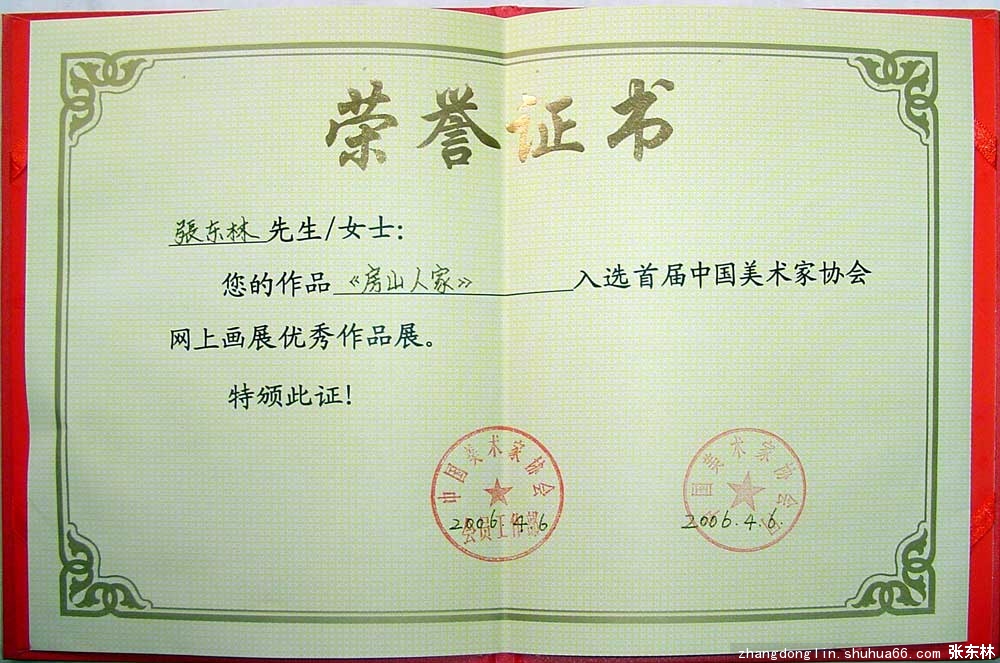 荣誉证书
張东林 先生/女士:
您的作品 《房山人家》 入选首届中国美术家协会
网上画展优秀作品展。
特颁此证!
中国美术家协会
会员工作部
2006.4.6
国美术家协会
2006.4.6.
zhangdonglin.shuhua66.com 张东林